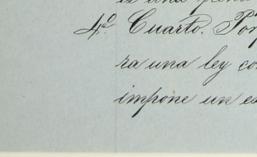 4º Cuarto. Por
ra una ley co
impone un es